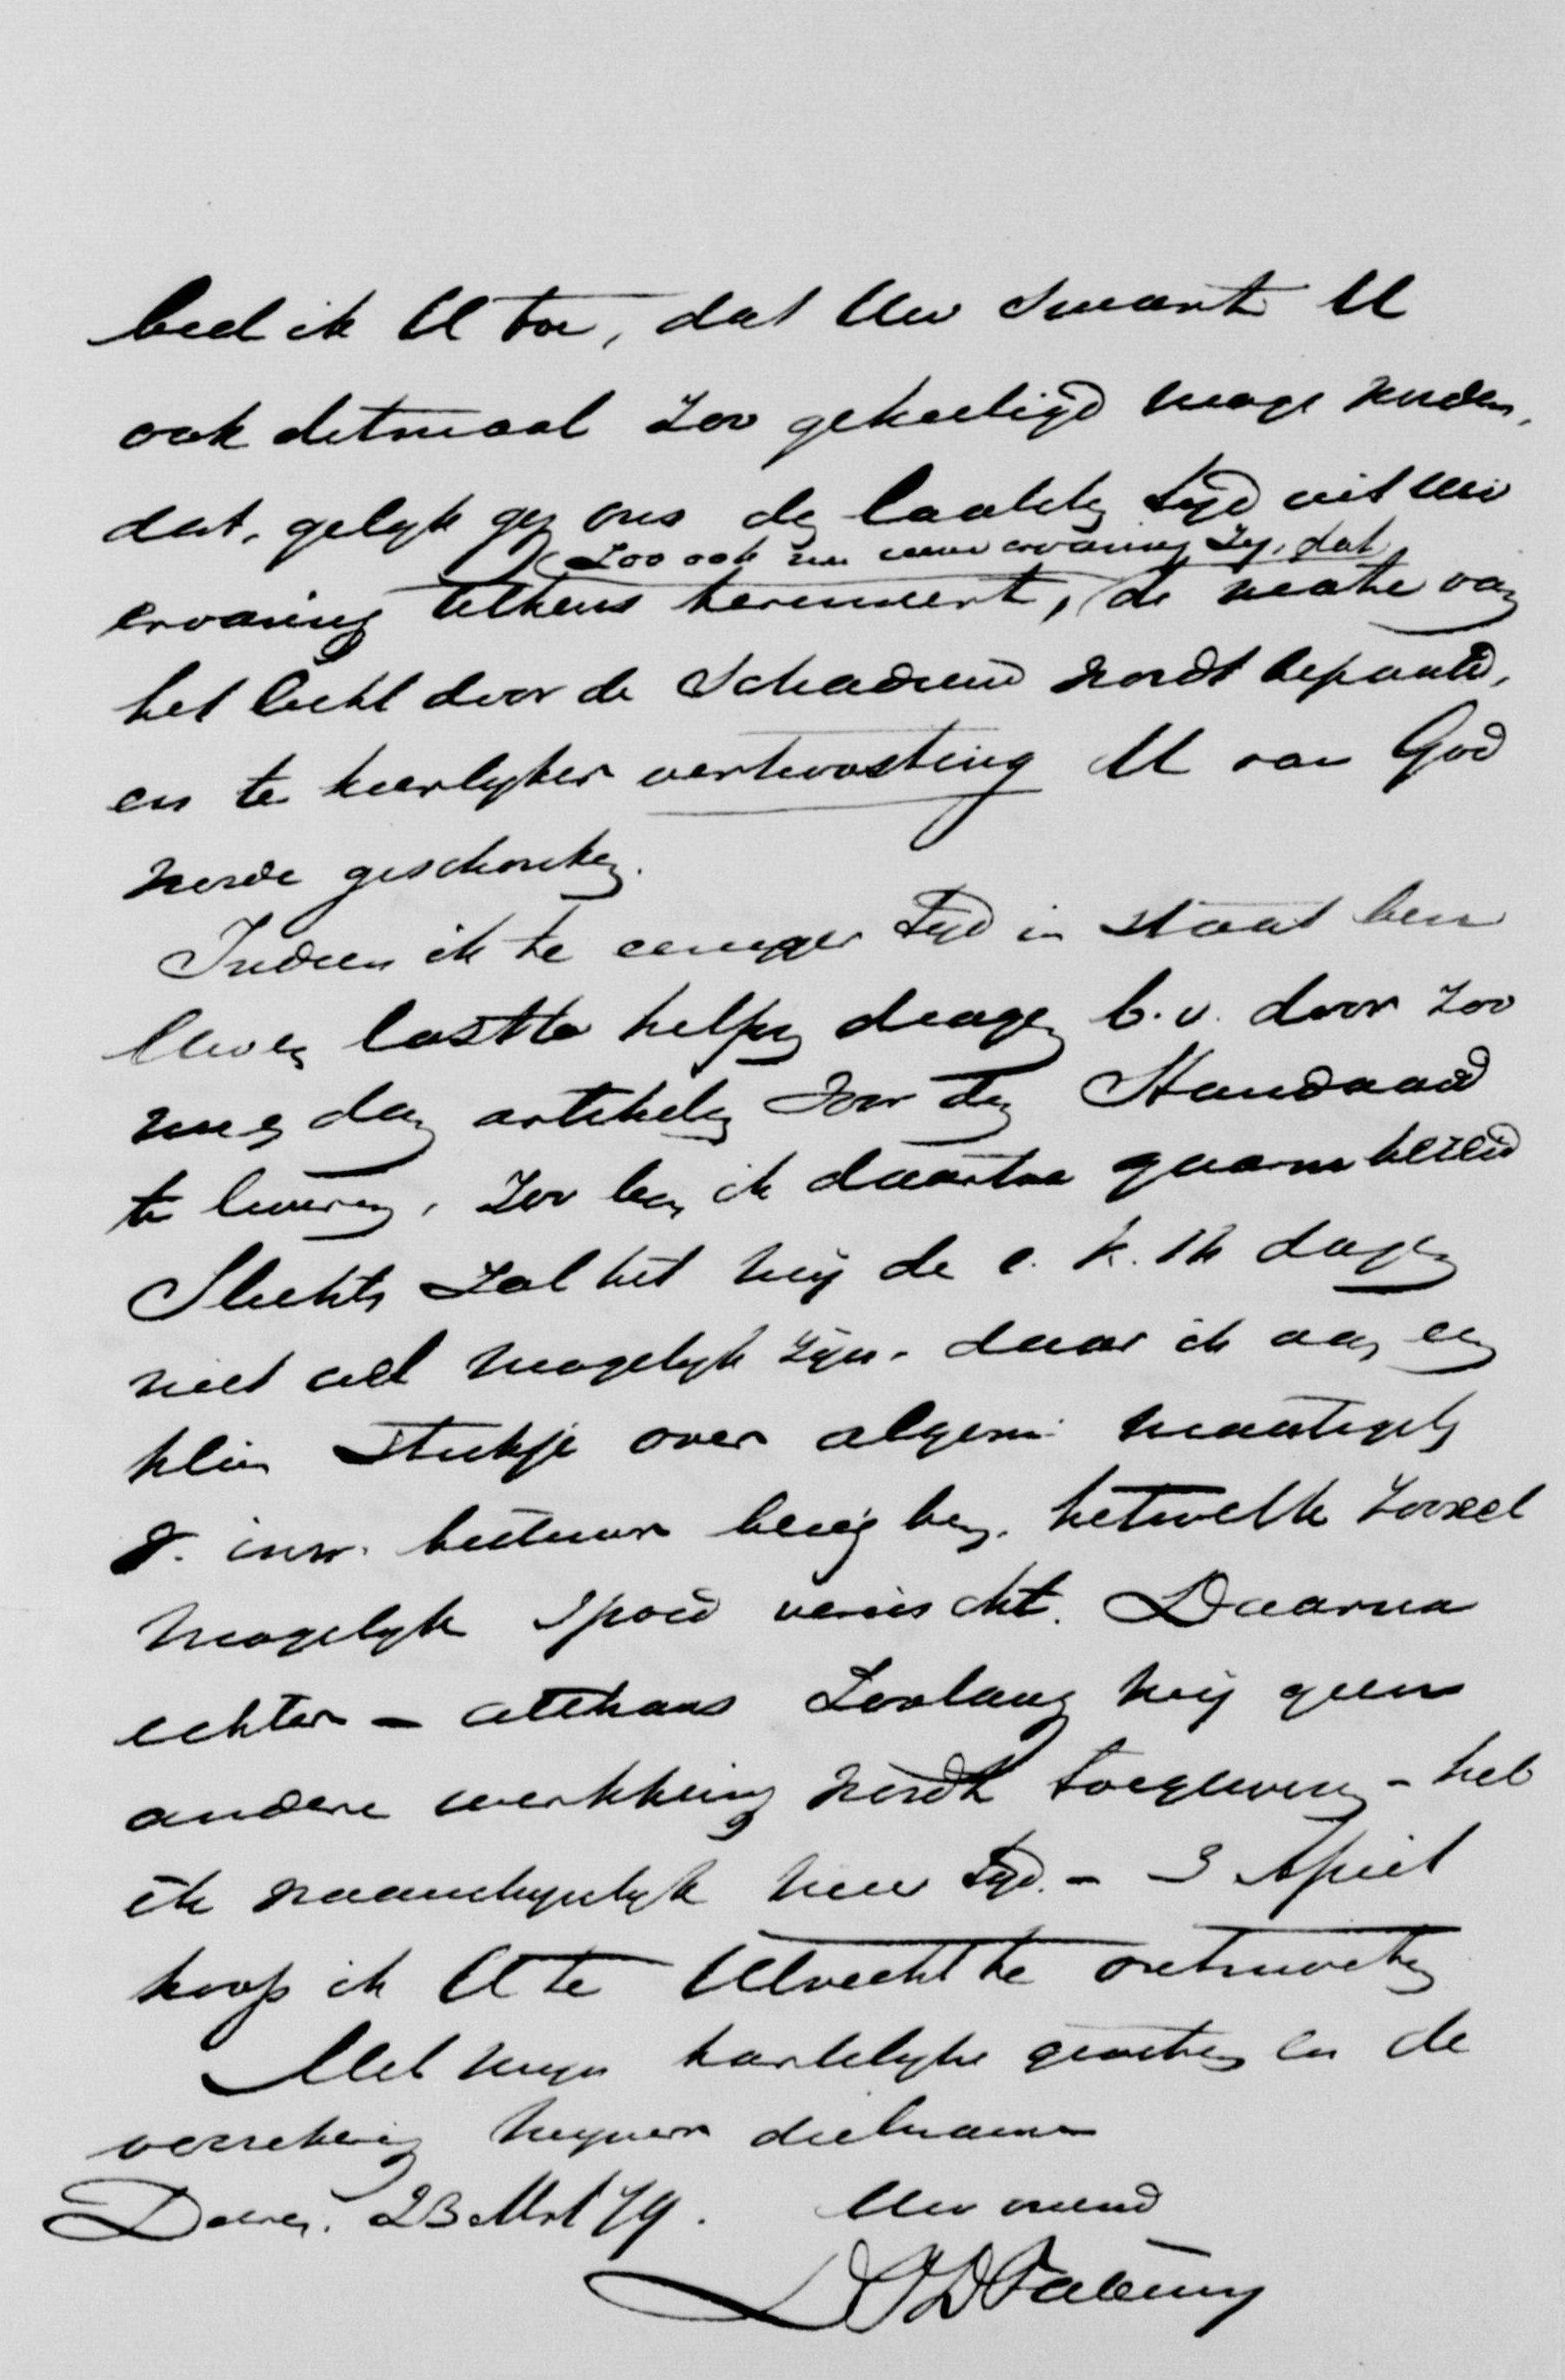 bid ik U toe, dat Uw smart U
ook ditmaal zoo geheiligd moge worden,
dat, gelyk gy ons den laatsten tyd uit Uw
zoo ook nu uwe ervaring zy, dat
ervaring telkens herinnert, de mate van
het licht door de schaduw wordt bepaald,
en te heerlyker vertroosting U van God
worde geschonken.
Indien ik te eeniger tyd in staat ben
Uwen last te helpen dragen b.v. door zoo
nu en dan artikelen voor den Standaard
te leveren, zoo ben ik daartoe gaarne bereid
Slechts zal het mij de e. k. 14 dagen
niet wel mogelyk zijn, daar ik aan een
klein stukje over algem. maatregels
v. inw. bestuur bezig ben, hetwelk zooveel
mogelyk spoed vereischt. Daarna
echter – althans zoolang mij geen
andere werkkring wordt toegewezen – heb
ik waarschynlyk meer tyd. – 3 April
hoop ik U te Utrecht te ontmoeten
Met myn hartelyke groeten en de
verzekering mijner deelname
23 Mrt 79. Uw vriend
DPD Fabius